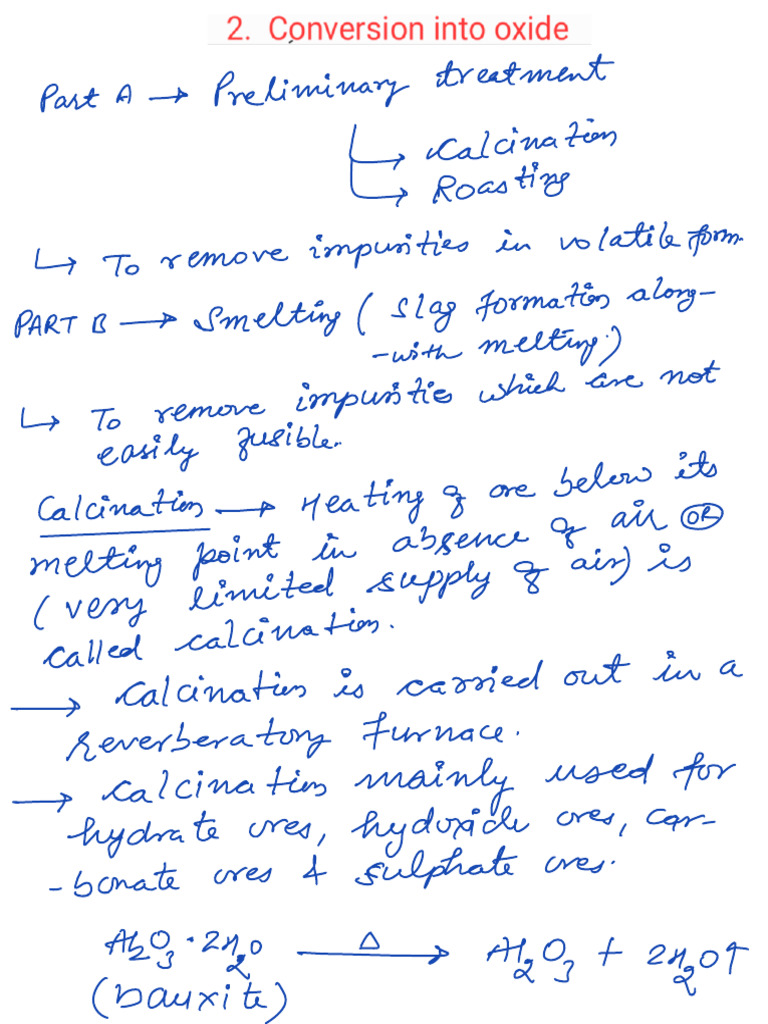 2. Conversion into oxide
Part A → Preliminary treatment
→ Calcination
→ Roasting
↳ To remove impurities in volatile form.
PART B → Smelting (slag formation along-
-with melting.)
↳ To remove impurities which are not
easily fusible.
Calcination → Heating of ore below its
melting point in absence of air OR
(very limited supply of air) is
called calcination.
→ Calcination is carried out in a
reverberatory furnace.
→ Calcination mainly used for
hydrate ores, hydoxide ores, car-
-bonate ores & sulphate ores.
Al₂O₃·2H₂O —Δ→ Al₂O₃ + 2H₂O↑
(bauxite)